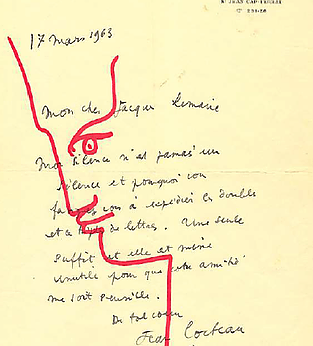 ST JEAN CAP-FERRAT
17 mars 1963
Mon cher Jacques Lemarie
Mon silence n'est jamais un
silence et pourquoi vous
vous à expédier en double
et de lettres. Une seule
suffit et elle est même
inutile pour que votre amitié
me soit sensible.
De tout cœur
Jean Cocteau